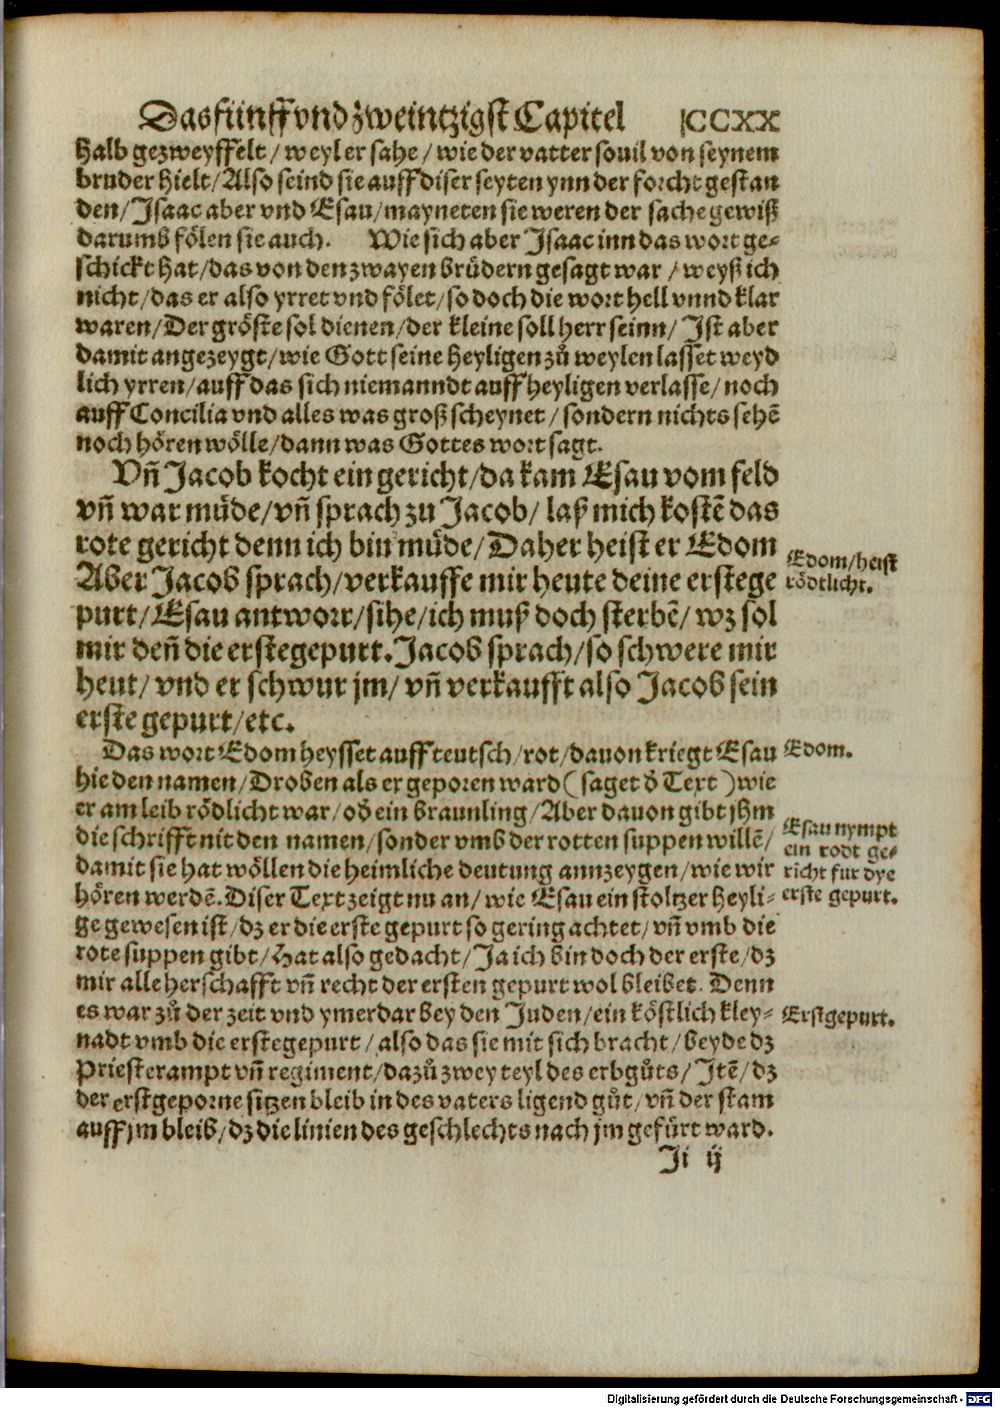 Das fünff vnd zweintzigst Capitel CCXX
halb gezweyffelt / weyl er sahe / wie der vatter souil von seynem
bruder hielt / Also seind sie auff diser seyten ynn der forcht gestan
den / Isaac aber vnd Esau / mayneten sie weren der sache gewiß
darumb fölen sie auch. Wie sich aber Isaac inn das wort ge-
schickt hat / das von den zwayen brüdern gesagt war / weyß ich
nicht / das er also yrret vnd fölet / so doch die wort hell vnnd klar
waren / Der gröste sol dienen / der kleine soll herr seinn / Ist aber
damit angezeygt / wie Gott seine heyligen zů weylen lasset weyd
lich yrren / auff das sich niemanndt auff heyligen verlasse / noch
auff Concilia vnd alles was groß scheynet / sondern nichts sehẽ
noch hören wölle / dann was Gottes wort sagt.
Vñ Jacob kocht ein gericht / da kam Esau vom feld
vñ war müde / vñ sprach zu Jacob / laß mich kostẽ das
rote gericht denn ich bin müde / Daher heist er Edom
Edom / heist
rödtlicht.
Aber Jacob sprach / verkauffe mir heute deine erstege
purt / Esau antworr / sihe / ich muß doch sterbẽ / wz sol
mir deñ die erstegepurt. Jacob sprach / so schwere mir
heut / vnd er schwur jm / vñ verkaufft also Jacob sein
erste gepurt / etc.
Das wort Edom heysset auff teutsch / rot / dauon kriegt Esau
Edom.
hie den namen / Droben als er geporen ward ( saget ď Text ) wie
er am leib rödlicht war / oď ein braunling / Aber dauon gibt jhm
die schrifft nit den namen / sonder vmb der rotten suppen willẽ /
Esau nympt
ein rodt ge-
richt fur dye
erste gepurt.
damit sie hat wöllen die heimliche deutung annzeygen / wie wir
hören werdẽ. Diser Text zeigt nu an / wie Esau ein stoltzer heyli-
ge gewesen ist / dz er die erste gepurt so gering achtet / vñ vmb die
rote suppen gibt / Hat also gedacht / Ja ich bin doch der erste / dz
mir alle herschafft vñ recht der ersten gepurt wol bleibet. Denn
es war zů der zeit vnd ymerdar bey den Juden / ein köstlich kley-
Erstgepurt.
nadt vmb die erstegepurt / also das sie mit sich bracht / beyde dz
Priesterampt vñ regiment / dazů zwey teyl des erbgůts / Itẽ / dz
der erstgeporne sitzen bleib in des vaters ligend gůt / vñ der stam
auff jm bleib / dz die linien des geschlechts nach jm gefürt ward.
Ii ij
Digitalisierung gefördert durch die Deutsche Forschungsgemeinschaft - DFG